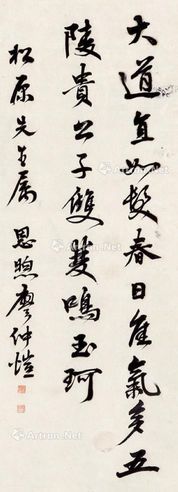 大道直如髮春日佳氣多五
陵貴公子雙雙鳴玉珂
松原先生屬 恩煦廖仲愷